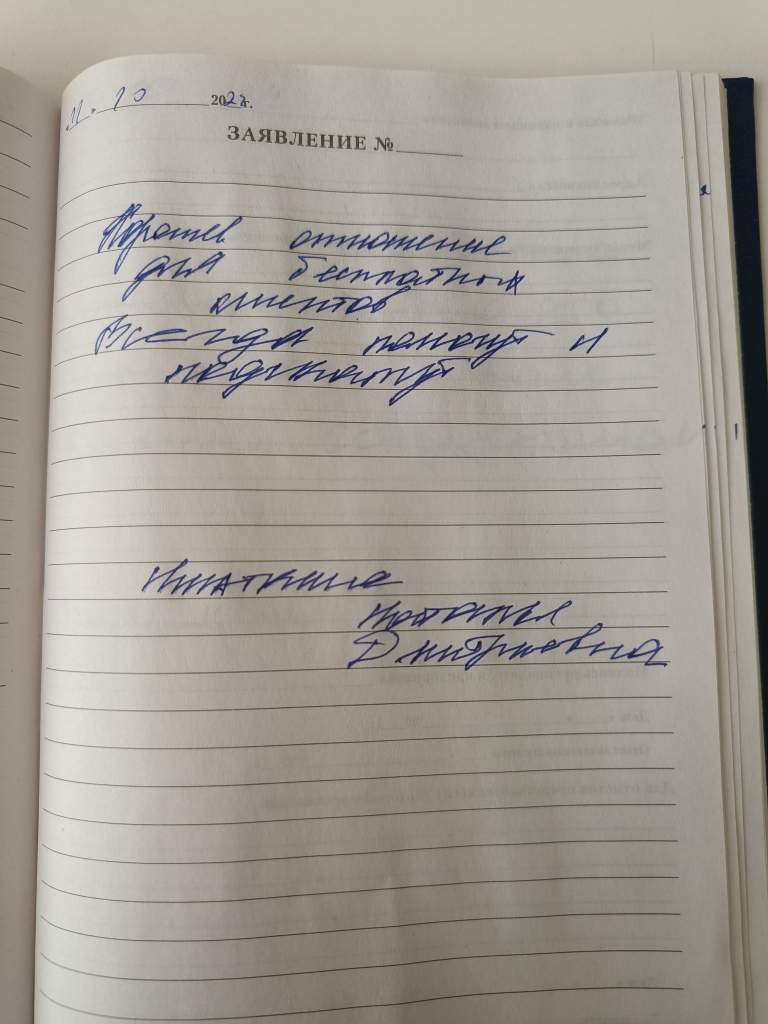 11. 10 2022г.
ЗАЯВЛЕНИЕ №
Хорошее отношение
для бесплатных
клиентов
Всегда помогут и
подскажут
Наталья
Дмитриевна